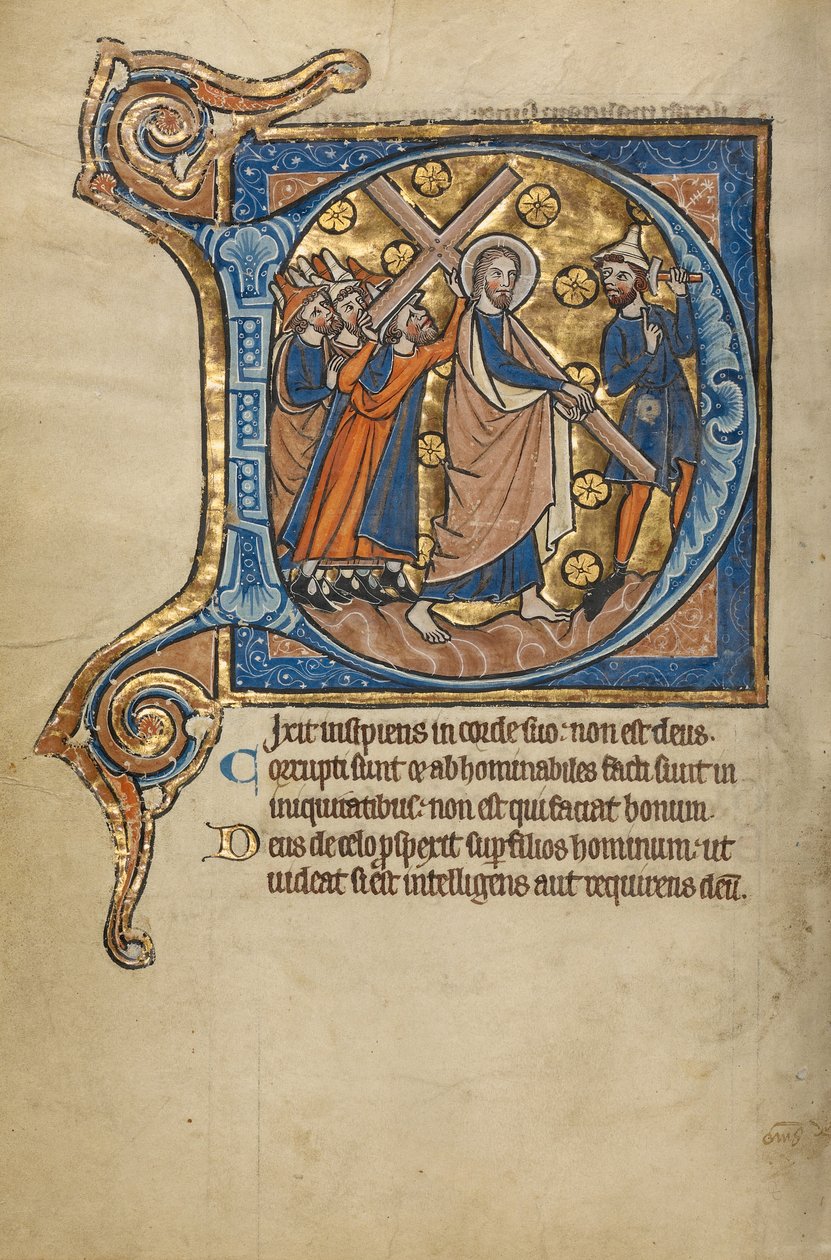 Dixit insipiens in corde suo: non est deus.
Corrupti sunt & abhominabiles facti sunt in
iniquitatibus: non est qui faciat bonum.
Deus de celo ꝓspexit sup̄ filios hominum: ut
uideat si est intelligens aut requirens deū.